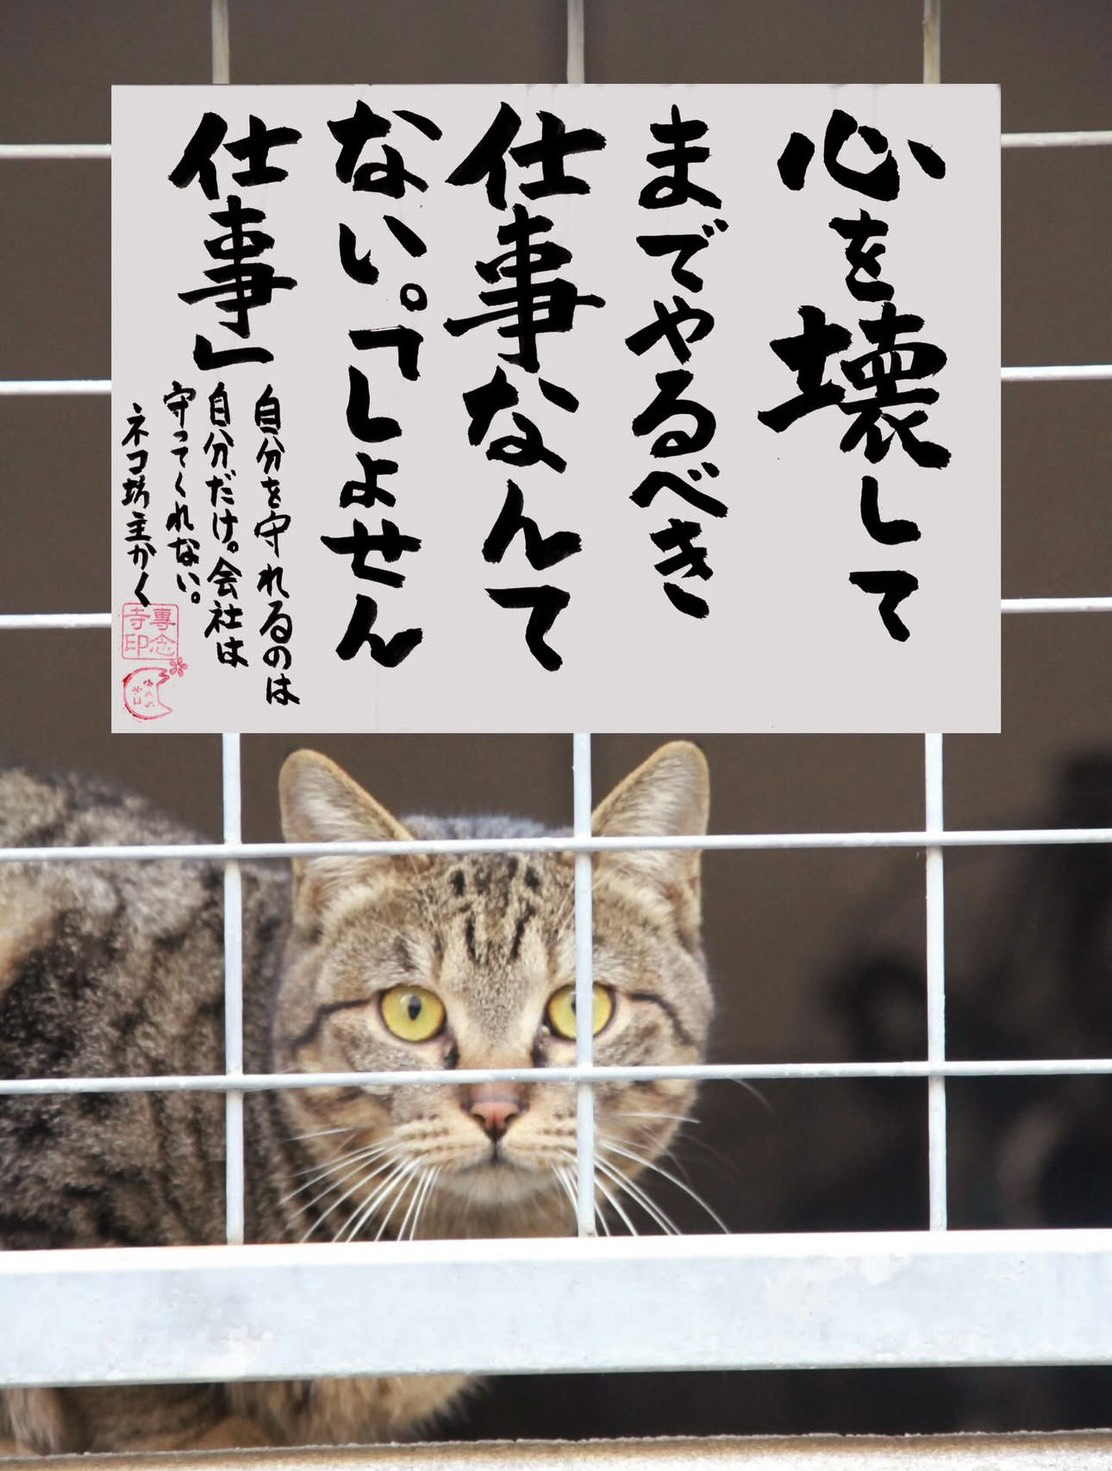 心を壊して
までやるべき
仕事なんて
ない。「しょせん
仕事」
自分を守れるのは
自分だけ。会社は
守ってくれない。
ネコ坊主かく
專念
寺印